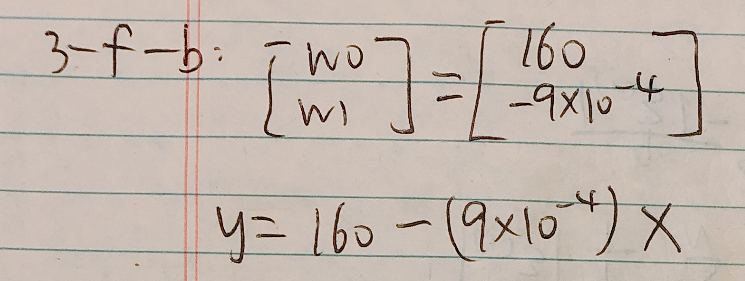 3-f-b: [w0 w1] = [160 -9×10^-4]
y = 160 - (9×10^-4) x